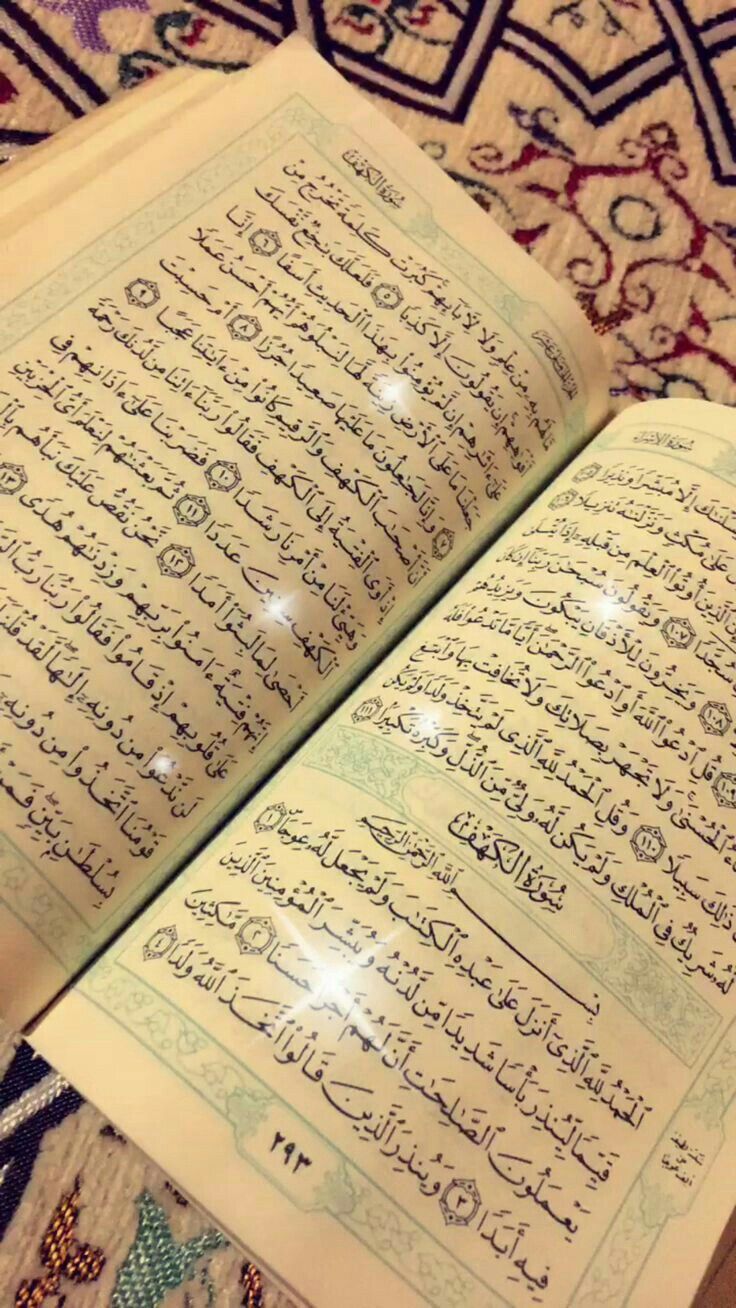 سُورَةُ الإِسْرَاءِ
إِلَّا مُبَشِّرًا وَنَذِيرًا
عَلَىٰ مُكْثٍ وَنَزَّلْنَٰهُ تَنزِيلًا
ٱلَّذِينَ أُوتُوا۟ ٱلْعِلْمَ مِن قَبْلِهِۦٓ إِذَا يُتْلَىٰ
سُجَّدًا ١٠٧ وَيَقُولُونَ سُبْحَٰنَ رَبِّنَآ إِن كَانَ
١٠٨ وَيَخِرُّونَ لِلْأَذْقَانِ يَبْكُونَ وَيَزِيدُهُمْ
١٠٩ قُلِ ٱدْعُوا۟ ٱللَّهَ أَوِ ٱدْعُوا۟ ٱلرَّحْمَٰنَ أَيًّا مَّا تَدْعُوا۟ فَلَهُ
ٱلْحُسْنَىٰ وَلَا تَجْهَرْ بِصَلَاتِكَ وَلَا تُخَافِتْ بِهَا وَٱبْتَغِ
ذَٰلِكَ سَبِيلًا ١١٠ وَقُلِ ٱلْحَمْدُ لِلَّهِ ٱلَّذِى لَمْ يَتَّخِذْ وَلَدًا وَلَمْ يَكُن
لَّهُۥ شَرِيكٌ فِى ٱلْمُلْكِ وَلَمْ يَكُن لَّهُۥ وَلِىٌّ مِّنَ ٱلذُّلِّ وَكَبِّرْهُ تَكْبِيرًا ١١١
سُورَةُ الكَهْفِ
بِسْمِ ٱللَّهِ ٱلرَّحْمَٰنِ ٱلرَّحِيمِ
ٱلْحَمْدُ لِلَّهِ ٱلَّذِىٓ أَنزَلَ عَلَىٰ عَبْدِهِ ٱلْكِتَٰبَ وَلَمْ يَجْعَل لَّهُۥ عِوَجَا ١
قَيِّمًا لِّيُنذِرَ بَأْسًا شَدِيدًا مِّن لَّدُنْهُ وَيُبَشِّرَ ٱلْمُؤْمِنِينَ ٱلَّذِينَ
يَعْمَلُونَ ٱلصَّٰلِحَٰتِ أَنَّ لَهُمْ أَجْرًا حَسَنًا ٢ مَّٰكِثِينَ
فِيهِ أَبَدًا ٣ وَيُنذِرَ ٱلَّذِينَ قَالُوا۟ ٱتَّخَذَ ٱللَّهُ وَلَدًا ٤
٢٩٣
سُورَةُ الكَهْفِ
مَّا لَهُم بِهِۦ مِنْ عِلْمٍ وَلَا لِءَابَآئِهِمْ كَبُرَتْ كَلِمَةً تَخْرُجُ مِنْ
أَفْوَٰهِهِمْ إِن يَقُولُونَ إِلَّا كَذِبًا ٥ فَلَعَلَّكَ بَٰخِعٌ نَّفْسَكَ
عَلَىٰٓ ءَاثَٰرِهِمْ إِن لَّمْ يُؤْمِنُوا۟ بِهَٰذَا ٱلْحَدِيثِ أَسَفًا ٦ إِنَّا
جَعَلْنَا مَا عَلَى ٱلْأَرْضِ زِينَةً لَّهَا لِنَبْلُوَهُمْ أَيُّهُمْ أَحْسَنُ عَمَلًا
٧ وَإِنَّا لَجَٰعِلُونَ مَا عَلَيْهَا صَعِيدًا جُرُزًا ٨ أَمْ حَسِبْتَ
أَنَّ أَصْحَٰبَ ٱلْكَهْفِ وَٱلرَّقِيمِ كَانُوا۟ مِنْ ءَايَٰتِنَا عَجَبًا ٩
إِذْ أَوَى ٱلْفِتْيَةُ إِلَى ٱلْكَهْفِ فَقَالُوا۟ رَبَّنَآ ءَاتِنَا مِن لَّدُنكَ رَحْمَةً
وَهَيِّئْ لَنَا مِنْ أَمْرِنَا رَشَدًا ١٠ فَضَرَبْنَا عَلَىٰٓ ءَاذَانِهِمْ فِى
ٱلْكَهْفِ سِنِينَ عَدَدًا ١١ ثُمَّ بَعَثْنَٰهُمْ لِنَعْلَمَ أَىُّ ٱلْحِزْبَيْنِ
أَحْصَىٰ لِمَا لَبِثُوٓا۟ أَمَدًا ١٢ نَّحْنُ نَقُصُّ عَلَيْكَ نَبَأَهُم
إِنَّهُمْ فِتْيَةٌ ءَامَنُوا۟ بِرَبِّهِمْ وَزِدْنَٰهُمْ هُدًى ١٣
عَلَىٰ قُلُوبِهِمْ إِذْ قَامُوا۟ فَقَالُوا۟ رَبُّنَا رَبُّ
لَن نَّدْعُوَا۟ مِن دُونِهِۦٓ إِلَٰهًا لَّقَدْ قُلْنَآ
قَوْمُنَا ٱتَّخَذُوا۟ مِن دُونِهِۦٓ
بِسُلْطَٰنٍۭ بَيِّنٍ فَمَنْ